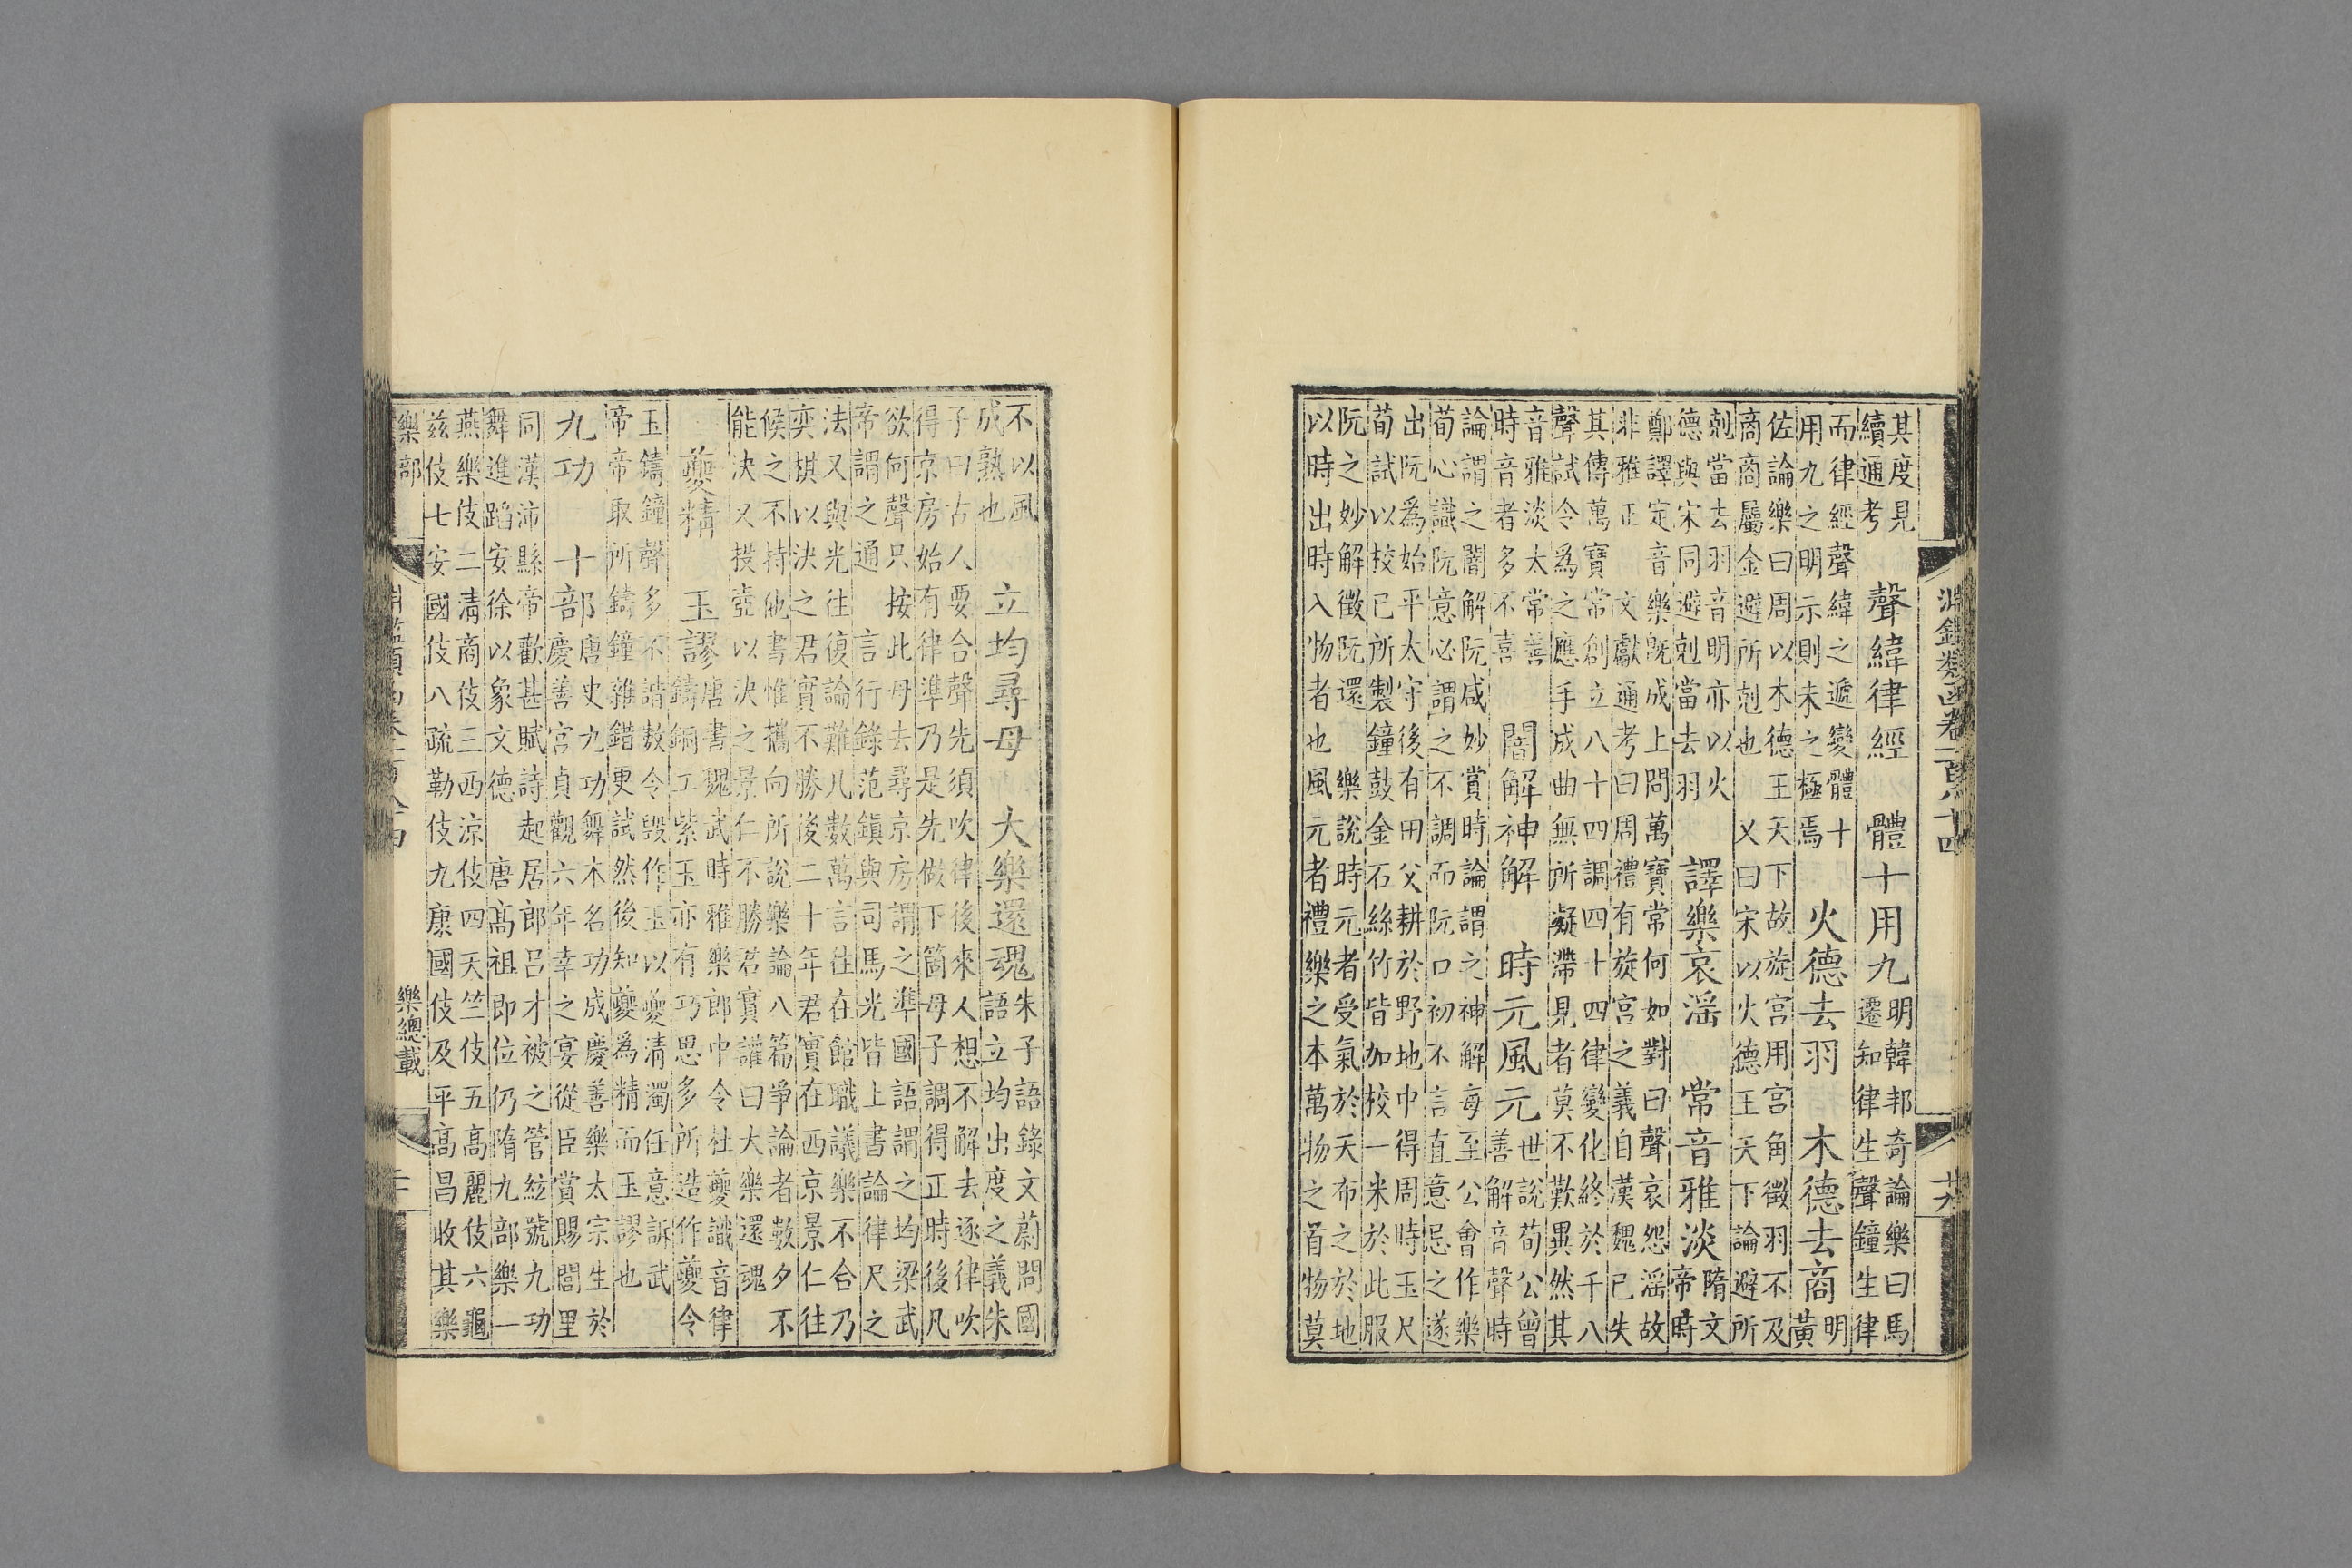 淵鑑類函卷一百八十四
其度見
續通考
聲緯律經　體十用九
明韓邦奇論樂曰馬
遷知律生聲鐘生律
而律經聲緯之遞變體十
用九之明示則未之極焉
火德去羽　木德去商
明
黃
佐論樂曰周以木德王天下故旋宮用宮角徵羽不及
商商屬金避所剋也　又曰宋以火德王天下論避所
剋當去羽音明亦以火
德與宋同避剋當去羽
譯樂哀淫　常音雅淡
隋文
帝時
鄭譯定音樂既成上問萬寶常何如對曰聲哀怨淫故
非雅正　文獻通考曰周禮有旋宮之義自漢魏已失
其傳萬寶常創立八十四調四十四律變化終於千八
聲試令為之應手成曲無所凝滯見者莫不歎異然其
音雅淡太常善
時音者多不喜
闇解神解　時元風元
世說荀公曾
善解音聲時
論謂之闇解阮咸妙賞時論謂之神解每至公會作樂
荀心識阮意必謂之不調而阮口初不言直意忌之遂
出阮為始平太守後有田父耕於野地中得周時玉尺
荀試以校已所製鐘鼓金石絲竹皆加校一米於此服
阮之妙解徵阮還　樂說時元者受氣於天布之於地
以時出時入物者也風元者禮樂之本萬物之首物莫
不以風
成熟也
立均尋母　大樂還魂
朱子語錄文蔚問國
語立均出度之義朱
子曰古人要合聲先須吹律後來人想不解去逐律吹
得京房始有律準乃是先做下箇母子調得正時後凡
欲何聲只按此母去尋京房謂之準國語謂之均梁武
帝謂之通　言行錄范鎮與司馬光皆上書論律尺之
法又與光往復論難凡數萬言往在館職議樂不合乃
奕棋以決之君實不勝後二十年君實在西京景仁往
候之不持他書惟攜向所說樂論八篇爭論者數夕不
能決又投壺以決之景仁不勝君實讙曰大樂還魂
夔精　玉謬
唐書魏武時雅樂郎中令杜夔識音律
鑄銅工紫玉亦有巧思多所造作夔令
玉鑄鐘聲多不諧數令毀作玉以夔清濁任意訴武
帝帝取所鑄鐘雜錯更試然後知夔為精而玉謬也
九功　十部
唐史九功舞本名功成慶善樂太宗生於
慶善宮貞觀六年幸之宴從臣賞賜閭里
同漢沛縣帝歡甚賦詩起居郎呂才被之管絃號九功
舞進蹈安徐以象文德　唐高祖即位仍隋九部樂一
燕樂伎二清商伎三西涼伎四天竺伎五高麗伎六龜
茲伎七安國伎八疏勒伎九康國伎及平高昌收其樂
樂部
樂總載